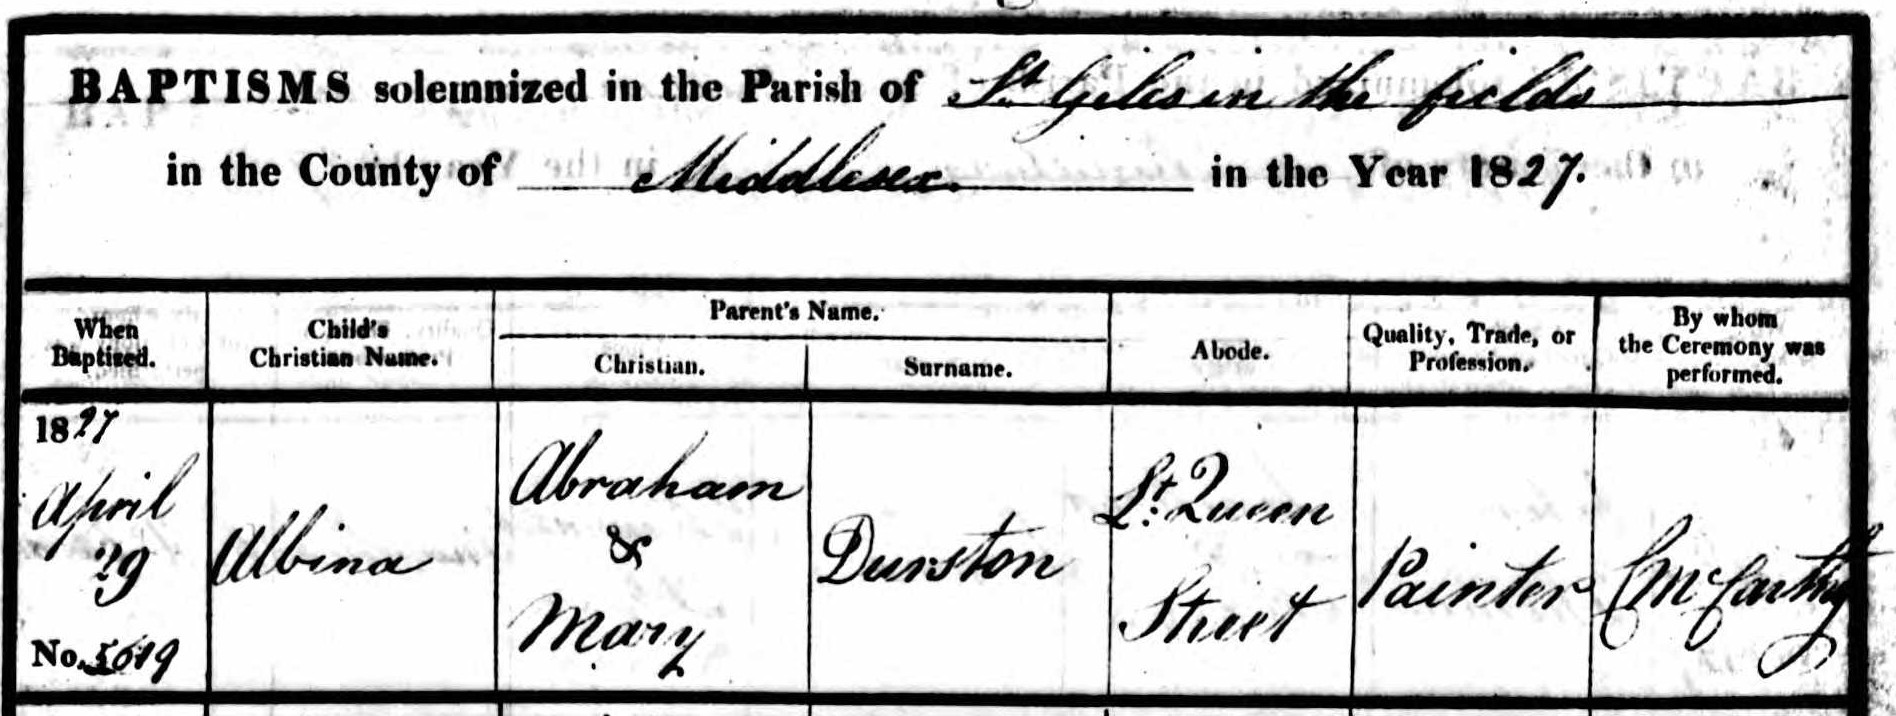 BAPTISMS solemnized in the Parish of St. Giles in the fields
in the County of Middlesex. in the Year 1827.
When Baptized.
Child's Christian Name.
Parent's Name.
Christian.
Surname.
Abode.
Quality, Trade, or Profession.
By whom the Ceremony was performed.
1827
April
29
No. 5619
Albina
Abraham
&
Mary
Durston
Lt. Queen
Street
Painter
McCarthy